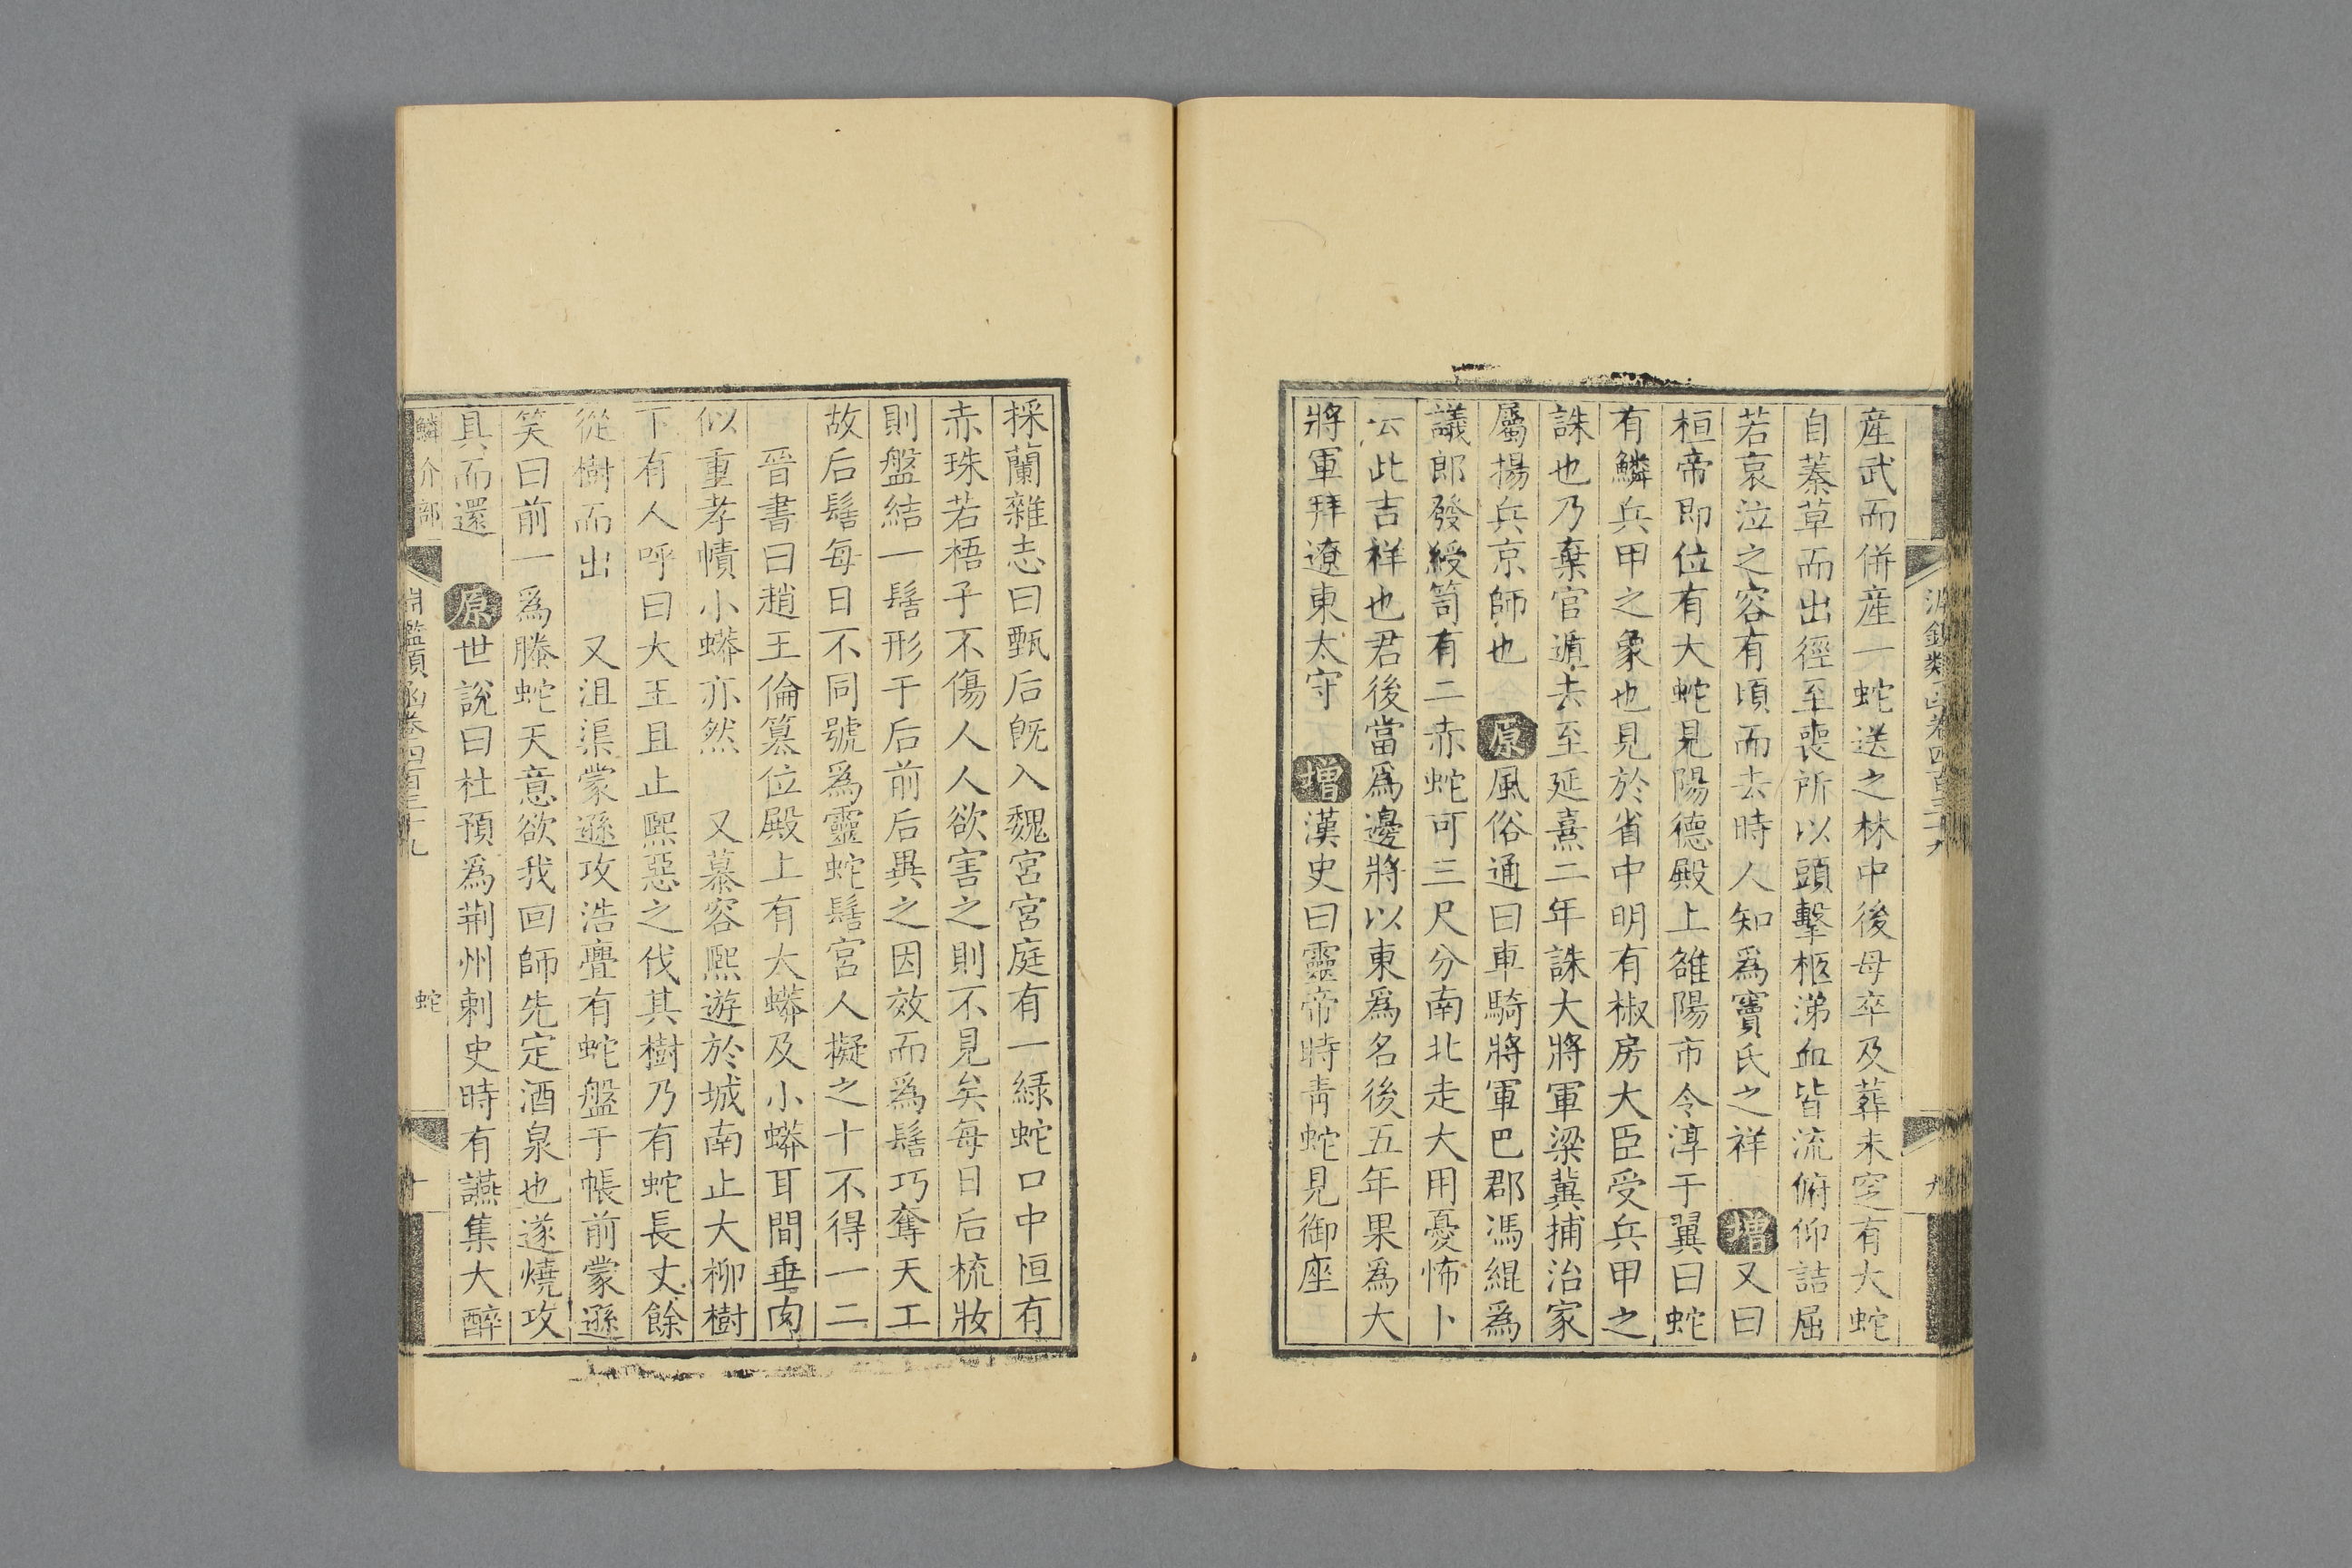 産武而併産一蛇送之林中後母卒及葬未窆有大蛇
自蓁草而出徑至喪所以頭擊柩涕血皆流俯仰詰屈
若哀泣之容有頃而去時人知爲竇氏之祥 增又曰
桓帝即位有大蛇見陽德殿上雒陽市令淳于翼曰蛇
有鱗兵甲之象也見於省中明有椒房大臣受兵甲之
誅也乃棄官遁去至延熹二年誅大將軍梁冀捕治家
屬揚兵京師也 原風俗通曰車騎將軍巴郡馮緄爲
議郎發綬笥有二赤蛇可三尺分南北走大用憂怖卜
云此吉祥也君後當爲邊將以東爲名後五年果爲大
將軍拜遼東太守 增漢史曰靈帝時靑蛇見御座
採蘭雜志曰甄后旣入魏宮宮庭有一綠蛇口中恒有
赤珠若梧子不傷人人欲害之則不見矣每日后梳妝
則盤結一髻形于后前后異之因效而爲髻巧奪天工
故后髻每日不同號爲靈蛇髻宮人擬之十不得一二
晉書曰趙王倫篡位殿上有大蟒及小蟒耳間垂肉
似重孝幘小蟒亦然 又慕容熙遊於城南止大柳樹
下有人呼曰大王且止熙惡之伐其樹乃有蛇長丈餘
從樹而出 又沮渠蒙遜攻浩亹有蛇盤于帳前蒙遜
笑曰前一爲騰蛇天意欲我回師先定酒泉也遂燒攻
具而還 原世說曰杜預爲荆州刺史時有讌集大醉
鱗介部 淵鑑類函卷四百三十九 蛇 十